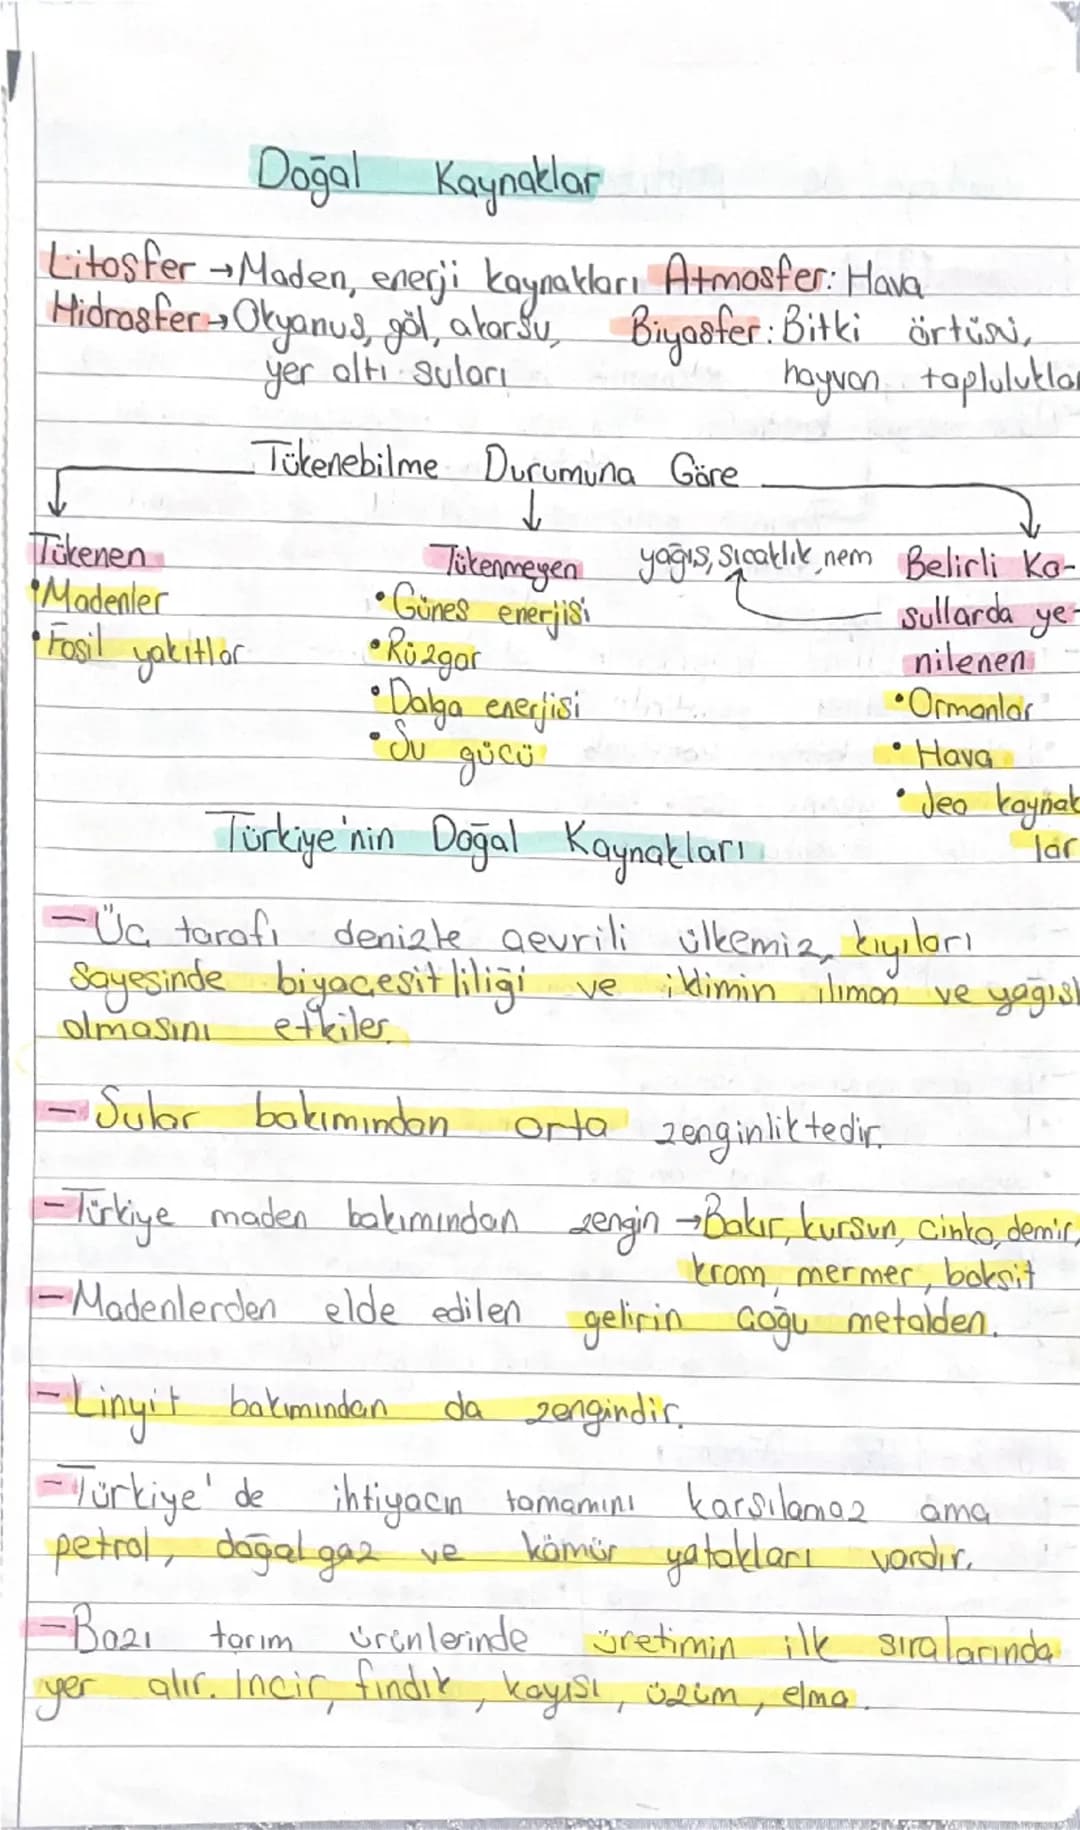 Doğal Kaynaklar
Litosfer → Maden, enerji kaynakları Atmosfer: Hava
Hidrosfer → Okyanus, göl, akarsu, Biyosfer: Bitki örtüsü,
yer altı suları hayvan toplulukla
Tükenebilme Durumuna Göre
Tükenen
• Madenler
• Fosil yakıtlar
Tükenmeyen
• Güneş enerjisi
• Rüzgar
• Dalga enerjisi
• Su gücü
yağıs, sıcaklık, nem
Belirli Ko-
sullarda ye-
nilenen
• Ormanlar
• Hava
• Jeo kaynak
lar
Türkiye'nin Doğal Kaynakları
- Üc tarafı denizle çevrili ülkemiz, kıyıları
sayesinde biyoçesitliliği ve iklimin ılıman ve yağısl
olmasını etkiler.
- Sular bakımından orta zenginliktedir.
- Türkiye maden bakımından zengin → Bakır, kursun, cinko, demir,
krom, mermer, boksit
- Madenlerden elde edilen gelirin coğu metalden.
- Linyit bakımından da zengindir.
- Türkiye'de ihtiyacın tamamını karsılamaz ama
petrol, doğal gaz ve kömür yatakları vardır.
- Bazı tarım ürünlerinde üretimin ilk sıralarında
yer alır. Incir, fındık, kayısı, üzüm, elma.